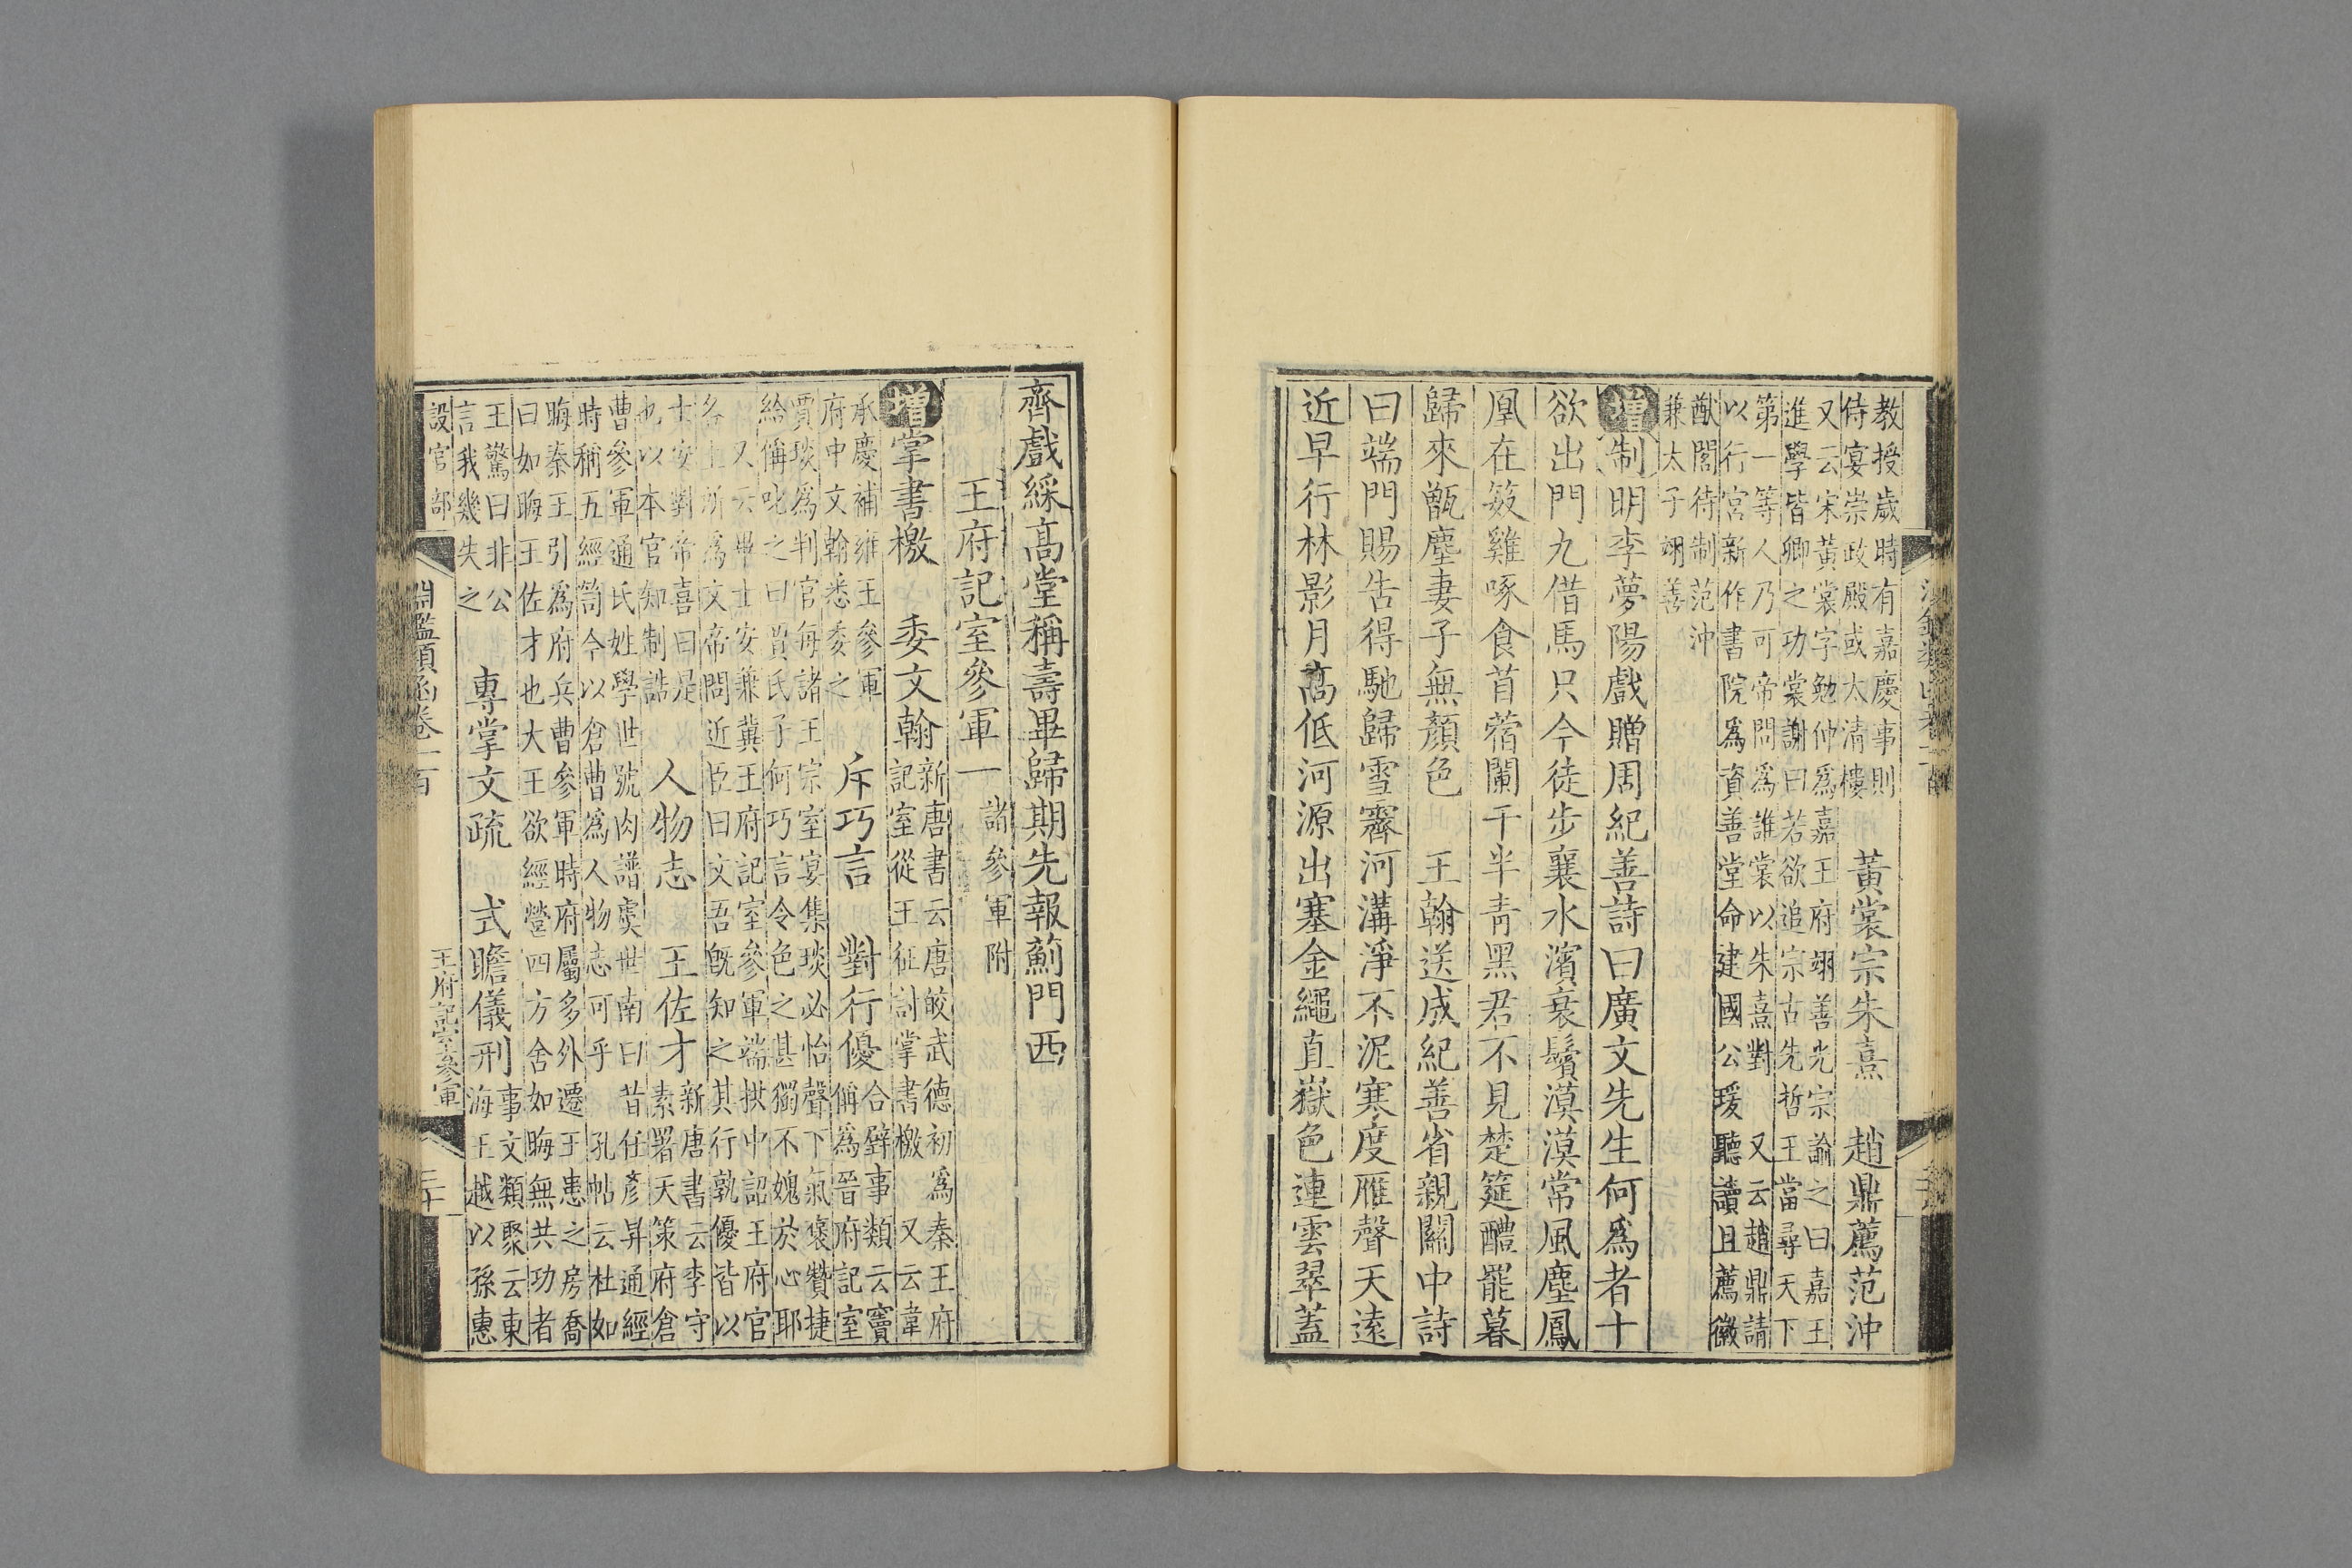 教授歲時有嘉慶事則
侍宴崇政殿或太清樓
黃裳宗朱熹　趙鼎薦范沖
又云宋黃裳字勉仲爲嘉王府翊善光宗諭之曰嘉王
進學皆卿之功裳謝曰若欲追宗古先哲王當尋天下
第一等人乃可帝問爲誰裳以朱熹對　又云趙鼎請
以行宮新作書院爲資善堂命建國公瑗聽讀且薦徽
猷閣待制范沖
兼太子翊善
增制明李夢陽戲贈周紀善詩曰廣文先生何爲者十
欲出門九借馬只今徒步襄水濱衰鬢漠漠常風塵鳳
凰在笯雞啄食苜蓿闌干半青黑君不見楚筵醴罷暮
歸來甑塵妻子無顏色　王翰送成紀善省親關中詩
曰端門賜告得馳歸雪霽河溝淨不泥寒度雁聲天遠
近早行林影月髙低河源出塞金繩直嶽色連雲翠蓋
齊戲綵髙堂稱壽畢歸期先報薊門西
王府記室參軍一　諸參軍附
增掌書檄　委文翰
新唐書云唐皎武德初爲秦王府
記室從王征討掌書檄　又云韋
承慶補雍王參軍
府中文翰悉委之
斥巧言　對行優
合璧事類云竇
偁爲晉府記室
賈琰爲判官每諸王宗室宴集琰必怡聲下氣褒贊捷
給偁叱之曰賈氏子何巧言令色之甚獨不媿於心耶
又云畢士安兼冀王府記室參軍端拱中詔王府官
各上所爲文帝問近臣曰文吾旣知之其行孰優皆以
士安對帝喜曰是
也以本官知制誥
人物志　王佐才
新唐書云李守
素署天策府倉
曹參軍通氏姓學世號肉譜虞世南曰昔任彥昇通經
時稱五經笥今以倉曹爲人物志可乎　孔帖云杜如
晦秦王引爲府兵曹參軍時府屬多外遷王患之房喬
曰如晦王佐才也大王欲經營四方舍如晦無共功者
王驚曰非公
言我幾失之
專掌文疏　式瞻儀刑
事文類聚云東
海王越以孫惠
設官部
淵鑑類函卷一百
王府記室參軍